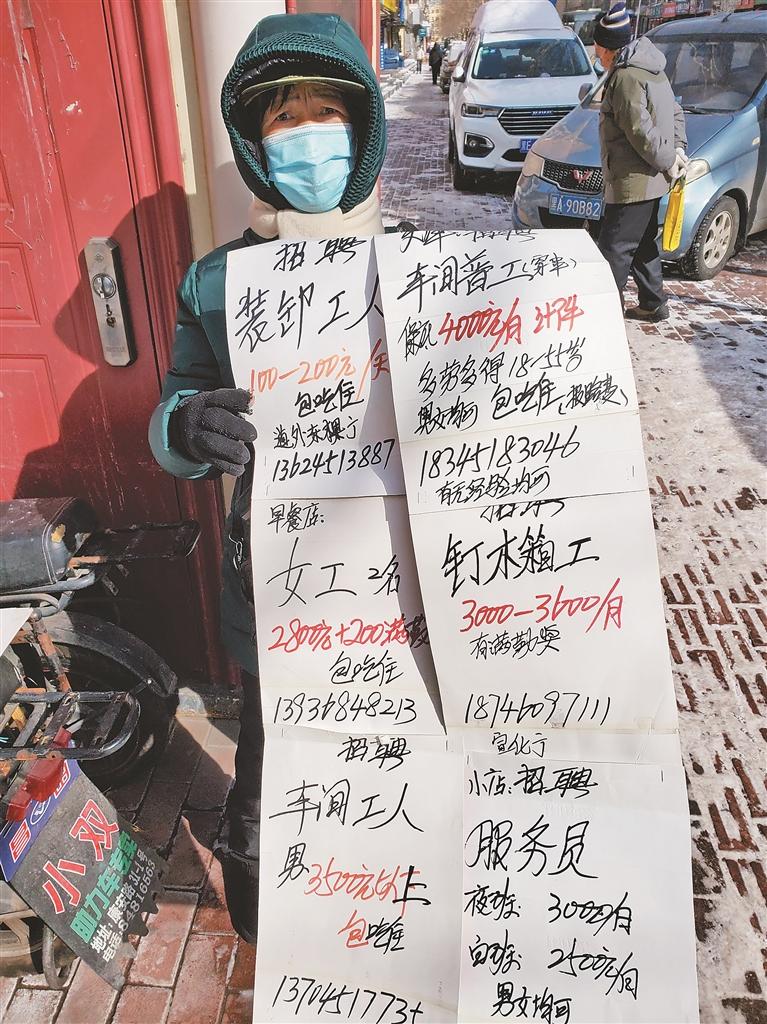 招聘
装卸工人
100—200元/天
包吃住
道外来寰宁
13624513887
车间普工(宾县)
保底4000元/月 计件
多劳多得 18-55岁
男女均可 包吃住(报路费)
18345183046
有无经验均可
早餐店:
女工2名
2800元+200满勤
包吃住
13936848213
招聘
钉木箱工
3000—3600/月
有满勤奖
18746097111
招聘
车间工人
男3500元以上
包吃住
宣化宁
小店:招聘
服务员
夜班: 3000/月
白班: 2500元/月
男女均可
小双
助力车专卖
电话:84816565
黑A 90B82